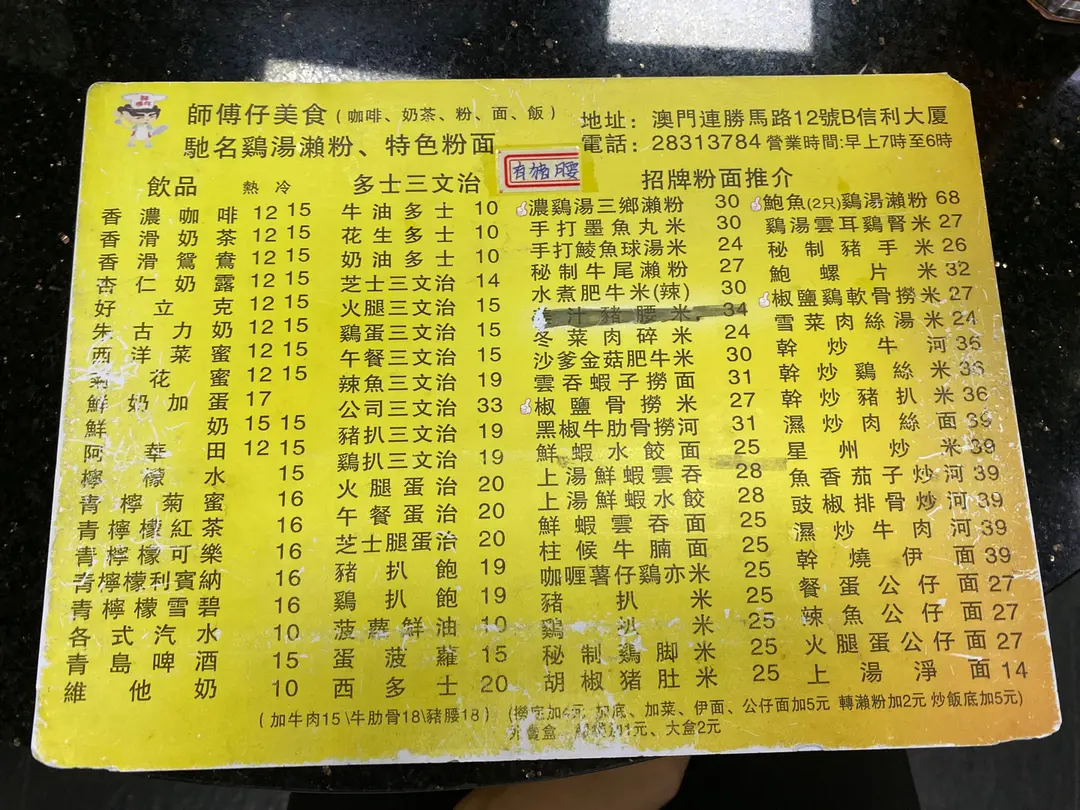 師傅仔美食(咖啡、奶茶、粉、面、飯)
馳名鷄湯瀨粉、特色粉面
地址：澳門連勝馬路12號B信利大厦
電話：28313784 營業時間:早上7時至6時
有猪腰
飲品 熱 冷
香濃咖啡 12 15
香滑奶茶 12 15
香滑鴛鴦 12 15
杏仁奶露 12 15
好立克 12 15
朱古力奶 12 15
西洋菜蜜 12 15
菊花蜜 12 15
鮮奶加蛋 17
鮮奶 15 15
阿華田 12 15
檸檬水 15
青檸菊蜜 16
青檸檬紅茶 16
青檸檬可樂 16
青檸檬利賓納 16
青檸檬雪碧 16
各式汽水 10
青島啤酒 15
維他奶 10
多士三文治
牛油多士 10
花生多士 10
奶油多士 10
芝士三文治 14
火腿三文治 15
鷄蛋三文治 15
午餐三文治 15
辣魚三文治 19
公司三文治 33
豬扒三文治 19
鷄扒三文治 19
火腿蛋治 20
午餐蛋治 20
芝士腿蛋治 20
豬扒飽 19
鷄扒飽 19
菠蘿鮮油 10
蛋菠蘿 15
西多士 20
招牌粉面推介
濃鷄湯三鄉瀨粉 30
手打墨魚丸米 30
手打鯪魚球湯米 24
秘制牛尾瀨粉 27
水煮肥牛米(辣) 30
汁豬腰米 34
冬菜肉碎米 24
沙爹金菇肥牛米 30
雲吞蝦子撈面 31
椒鹽骨撈米 27
黑椒牛肋骨撈河 31
鮮蝦水餃面 25
上湯鮮蝦雲吞 28
上湯鮮蝦水餃 28
鮮蝦雲吞面 25
柱候牛腩面 25
咖喱薯仔鷄亦米 25
豬扒米 25
鷄扒米 25
秘制鷄脚米 25
胡椒猪肚米 25
鮑魚(2只)鷄湯瀨粉 68
鷄湯雲耳鷄腎米 27
秘制豬手米 26
鮑螺片米 32
椒鹽鷄軟骨撈米 27
雪菜肉絲湯米 24
幹炒牛河 36
幹炒鷄絲米 36
幹炒豬扒米 36
濕炒肉絲面 39
星州炒米 39
魚香茄子炒河 39
豉椒排骨炒河 39
濕炒牛肉河 39
幹燒伊面 39
餐蛋公仔面 27
辣魚公仔面 27
火腿蛋公仔面 27
上湯淨面 14
(加牛肉15\牛肋骨18\豬腰18)
(撈定加4元 加底、加菜、伊面、公仔面加5元 轉瀨粉加2元 炒飯底加5元)
外賣盒 加1元、大盒2元